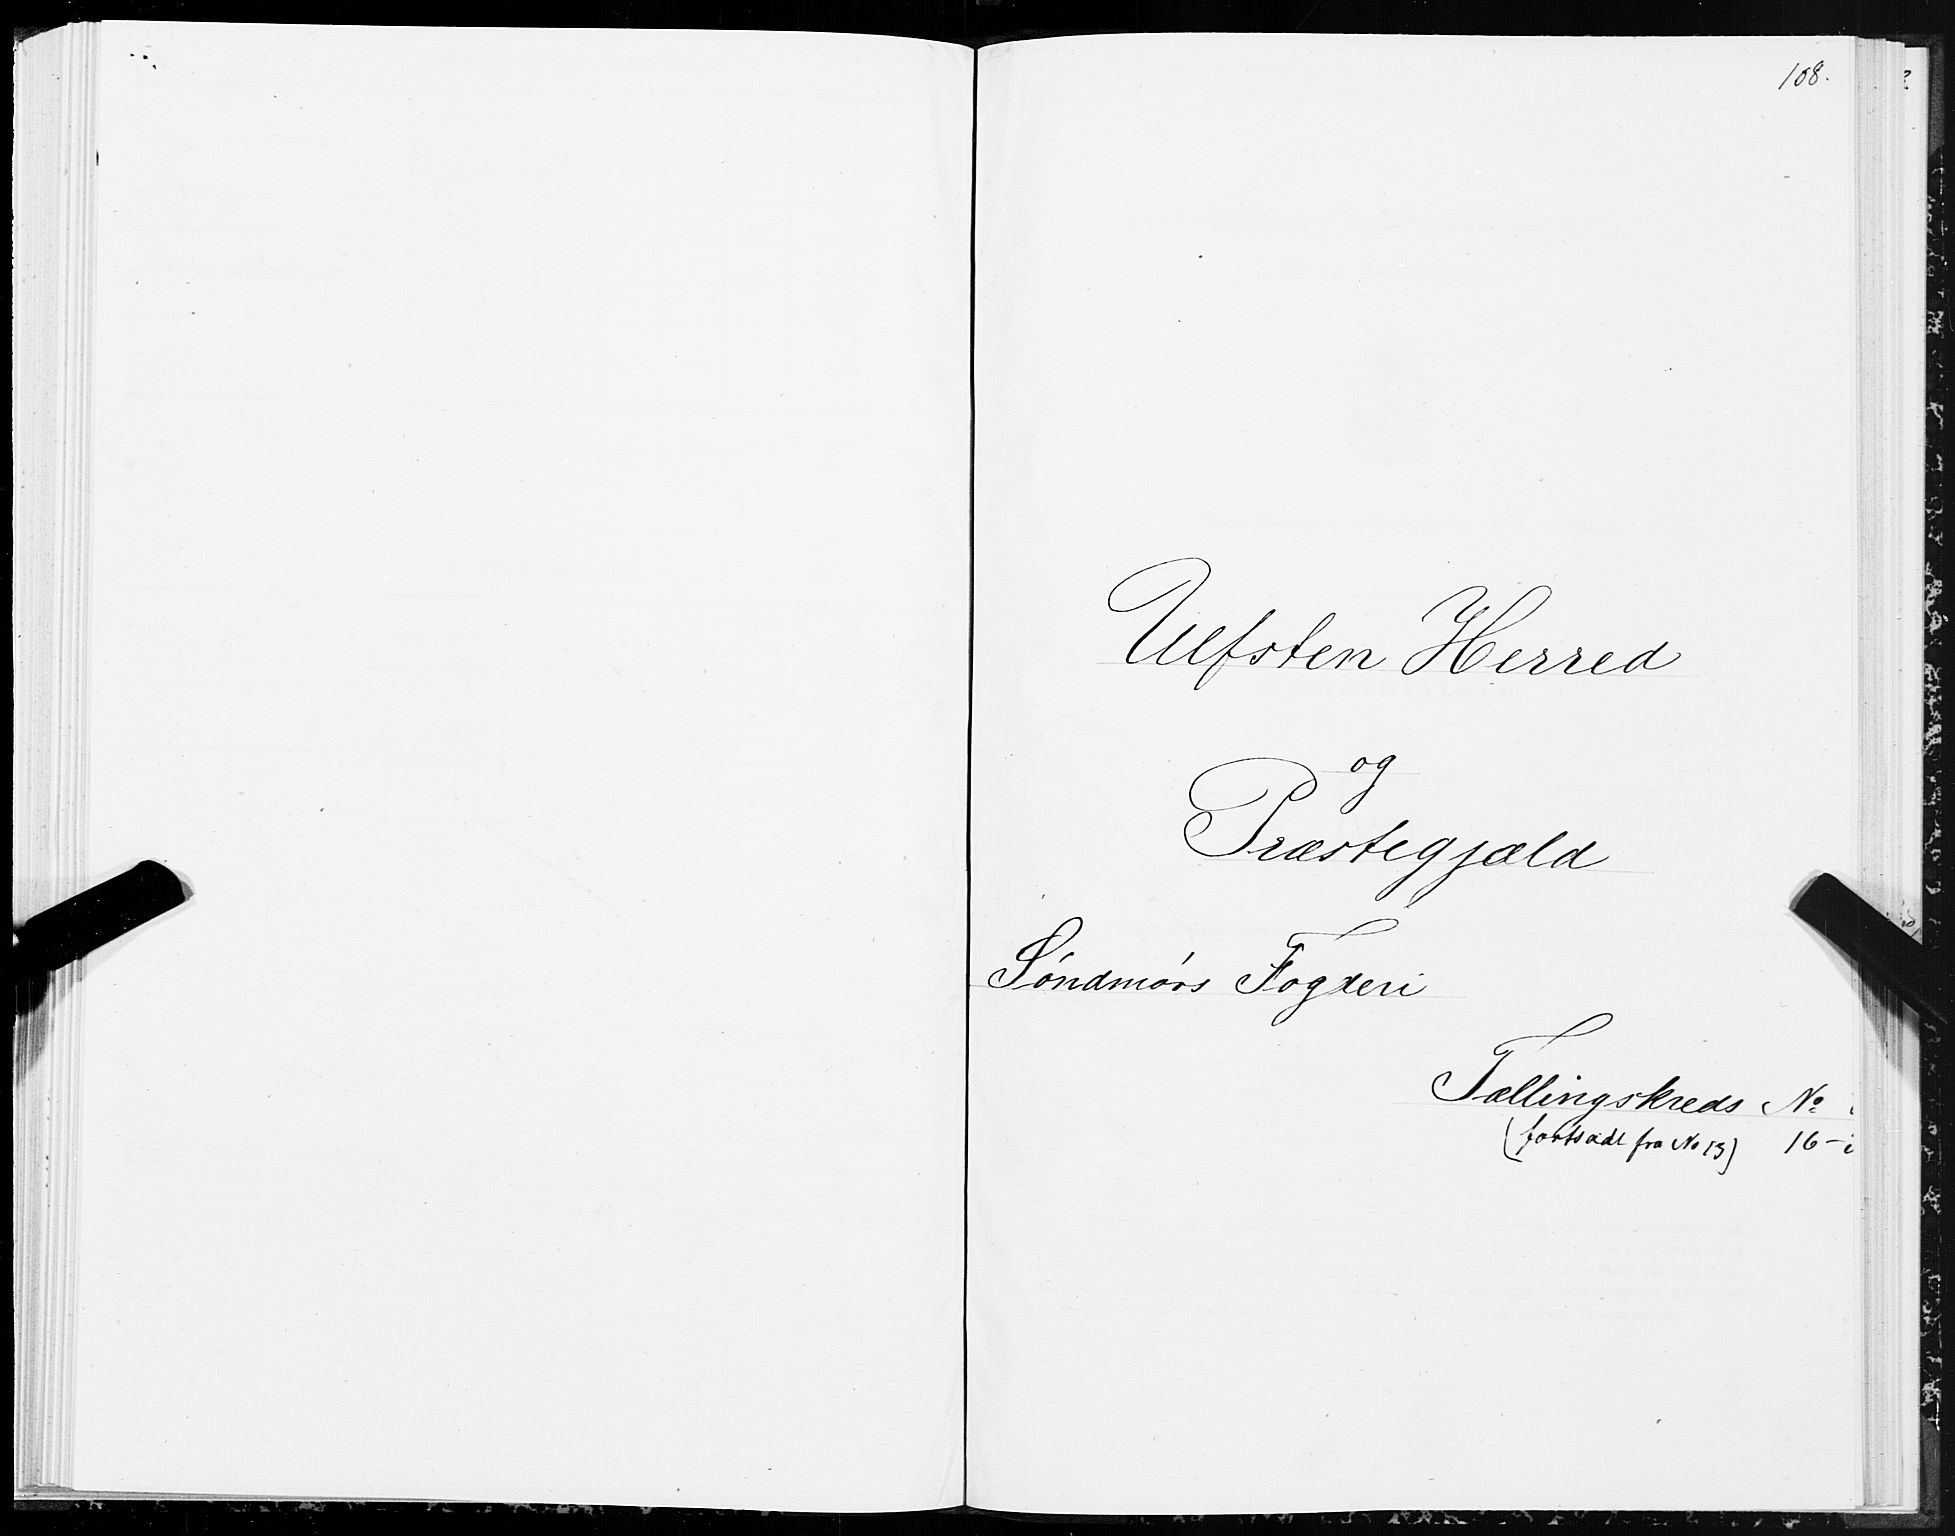 108.
Ulfsten Herred
og
Præstegjæld
Söndmörs Fogderi
Tællingskreds No
(fortsadt fra No 13) 16-